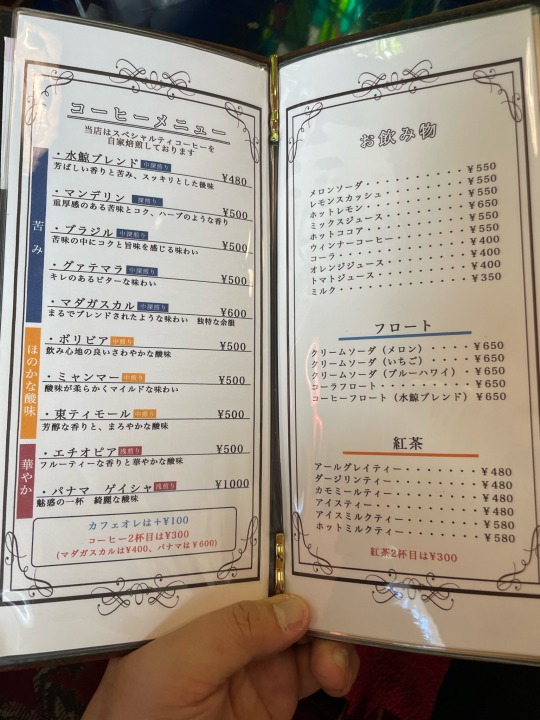 コーヒーメニュー
当店はスペシャルティコーヒーを
自家焙煎しております
苦み
・水鯨ブレンド 中深煎り ¥480
芳ばしい香りと苦み、スッキリとした後味
・マンデリン 深煎り ¥500
重厚感のある苦味とコク、ハーブのような香り
・ブラジル 中深煎り ¥500
苦味の中にコクと旨味を感じる味わい
・グァテマラ 中深煎り ¥500
キレのあるビターな味わい
・マダガスカル 中深煎り ¥600
まるでブレンドされたような味わい 独特な余韻
ほのかな酸味
・ボリビア 中煎り ¥500
飲み心地の良いさわやかな酸味
・ミャンマー 中煎り ¥500
酸味が柔らかくマイルドな味わい
・東ティモール 中煎り ¥500
芳醇な香りと、まろやかな酸味
華やか
・エチオピア 浅煎り ¥500
フルーティーな香りと華やかな酸味
・パナマ ゲイシャ 浅煎り ¥1000
魅惑の一杯 綺麗な酸味
カフェオレは＋¥100
コーヒー2杯目は¥300
(マダガスカルは¥400、パナマは¥600)
お飲み物
メロンソーダ・・・・・・・・・・¥550
レモンスカッシュ・・・・・・・・¥550
ホットレモン・・・・・・・・・・¥550
ミックスジュース・・・・・・・・¥650
ホットココア・・・・・・・・・・¥550
ウィンナーコーヒー・・・・・・・¥550
コーラ・・・・・・・・・・・・・¥400
オレンジジュース・・・・・・・・¥400
トマトジュース・・・・・・・・・¥400
ミルク・・・・・・・・・・・・・¥350
フロート
クリームソーダ（メロン）・・・・¥650
クリームソーダ（いちご）・・・・¥650
クリームソーダ（ブルーハワイ）・¥650
コーラフロート・・・・・・・・・¥650
コーヒーフロート（水鯨ブレンド）¥650
紅茶
アールグレイティー・・・・・・・¥480
ダージリンティー・・・・・・・・¥480
カモミールティー・・・・・・・・¥480
アイスティー・・・・・・・・・・¥480
アイスミルクティー・・・・・・・¥580
ホットミルクティー・・・・・・・¥580
紅茶2杯目は¥300